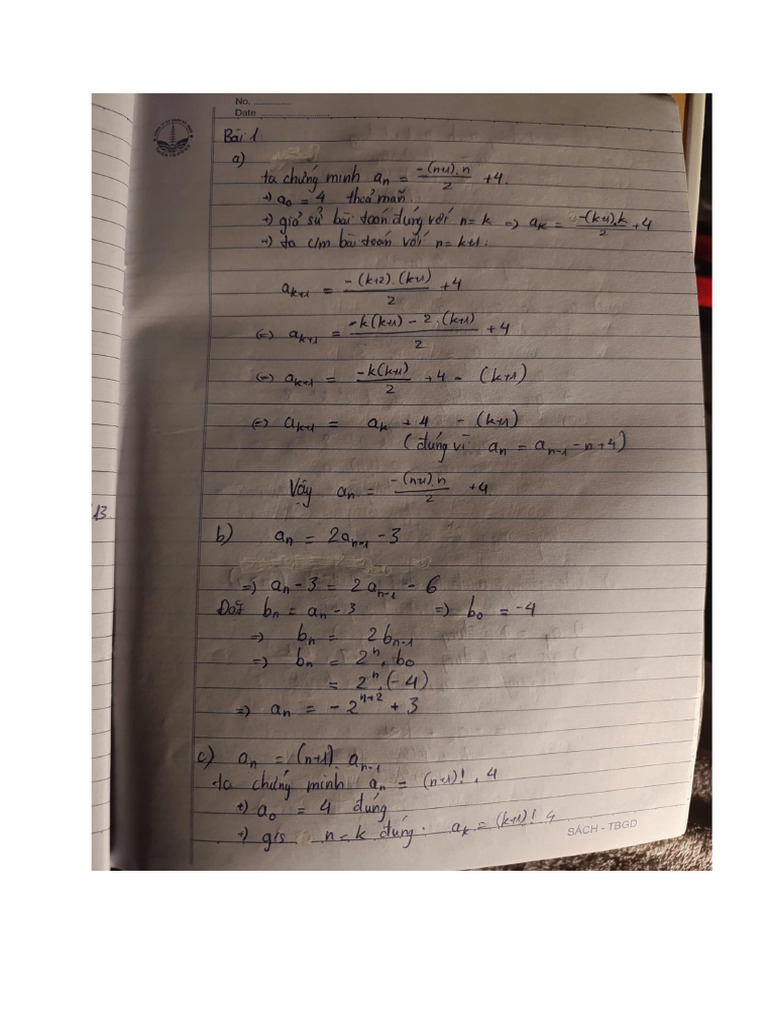 No. ............
Date ........................
Bài 1
a)
ta chứng minh aₙ = -(n+1).n/2 +4.
+) a₀ = 4 thoả mãn.
+) giả sử bài toán đúng với n = k => aₖ = -(k+1).k/2 +4
+) ta c/m bài toán với n = k+1:
aₖ₊₁ = -(k+2).(k+1)/2 +4
(=) aₖ₊₁ = -k(k+1) - 2.(k+1)/2 +4
(=) aₖ₊₁ = -k(k+1)/2 +4 - (k+1)
(=) aₖ₊₁ = aₖ + 4 - (k+1)
(đúng vì aₙ = aₙ₋₁ - n + 4)
Vậy aₙ = -(n+1).n/2 +4.
13.
b) aₙ = 2aₙ₋₁ - 3
=) aₙ - 3 = 2aₙ₋₁ - 6
Đặt bₙ = aₙ - 3 =) b₀ = -4
=) bₙ = 2bₙ₋₁
=) bₙ = 2ⁿ. b₀
= 2ⁿ.(-4)
=) aₙ = -2ⁿ⁺² + 3
c) aₙ = (n+1). aₙ₋₁
ta chứng minh aₙ = (n+1)! . 4
+) a₀ = 4 đúng
+) gis n = k đúng: aₖ = (k+1)! 4
SÁCH - TBGD